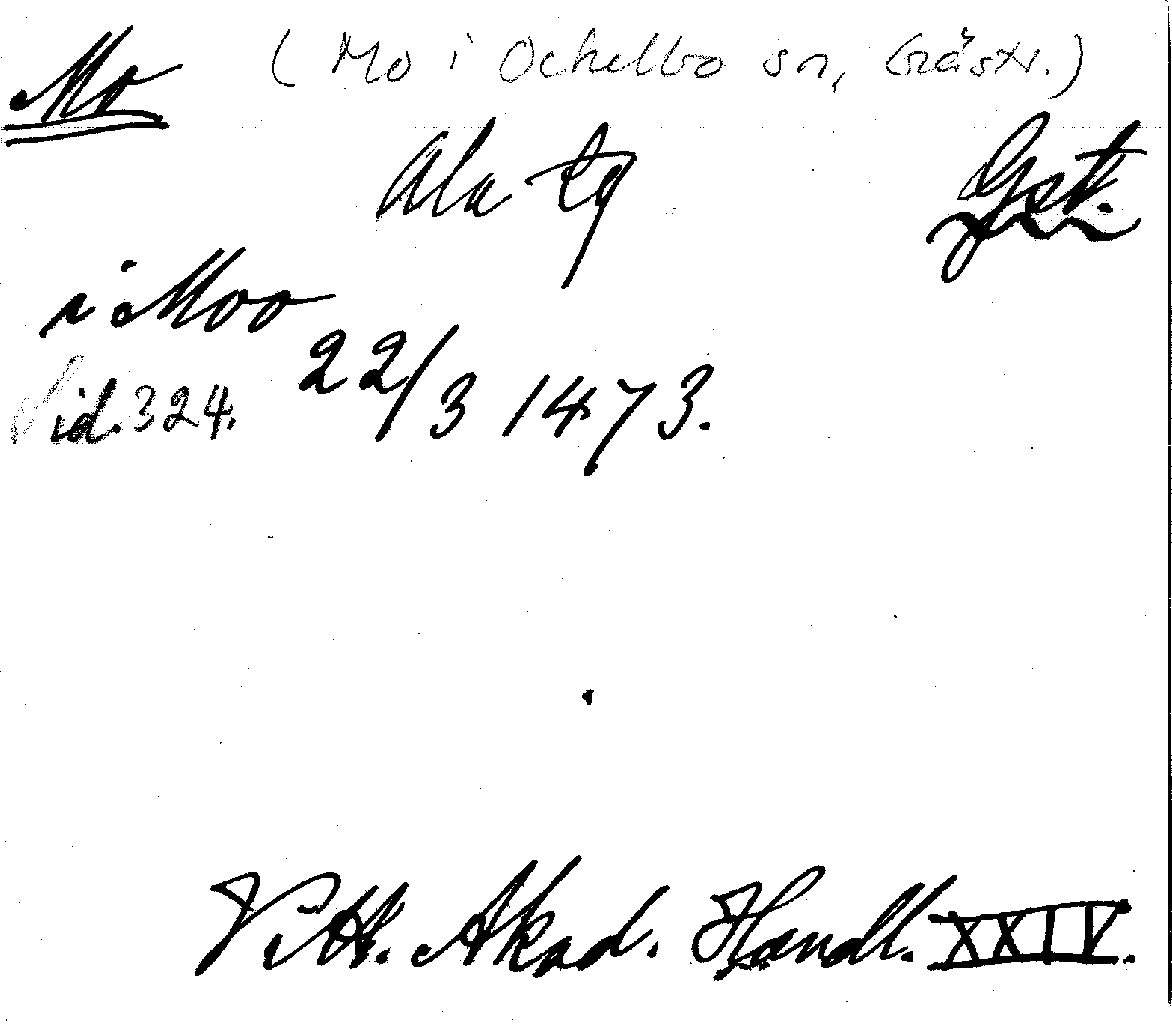 Mo (Mo i Ockelbo sn, Gästr.)
Ala tg Gst.
i Moo
Sid. 324. 22/3 1473.
Vitt. Akad. Handl. XXIV.